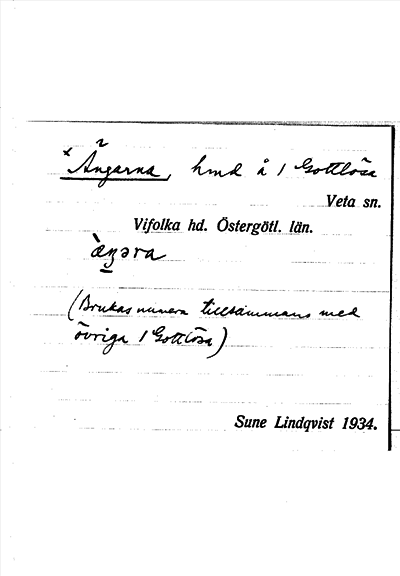 × Ängarna, hmd å 1 Gottlösa
Veta sn.
Vifolka hd. Östergötl. län.
æŋəra
(Brukas numera tillsammans med
övriga 1 Gottlösa)
Sune Lindqvist 1934.